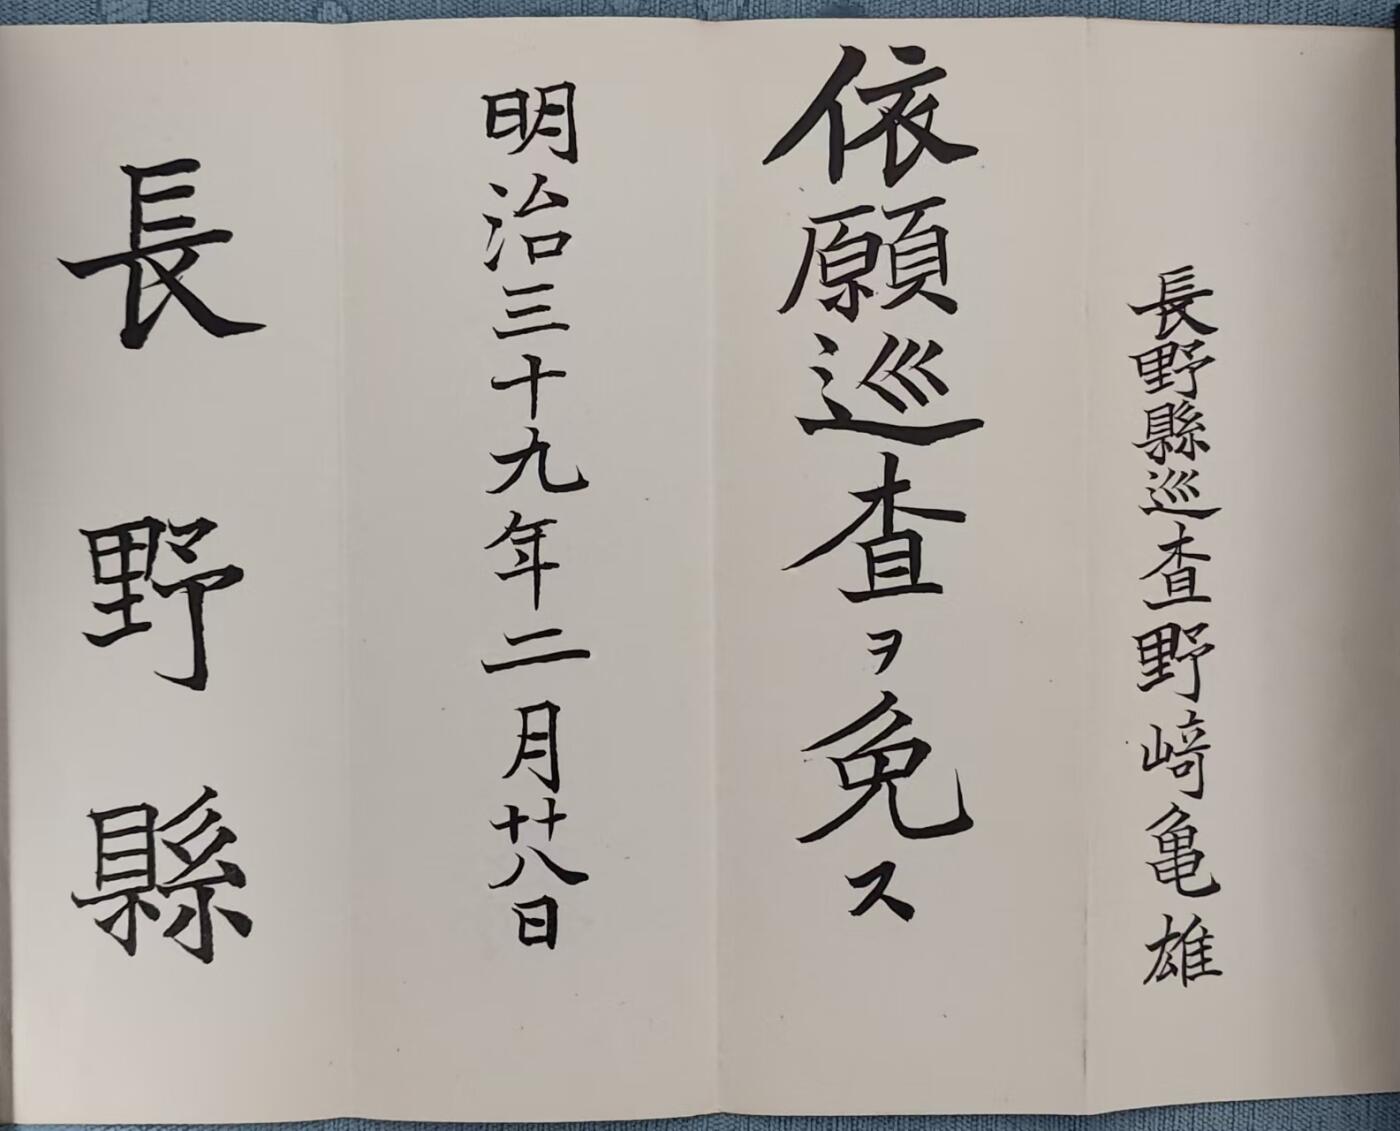 長野縣巡査野﨑亀雄
依願巡査ヲ免ス
明治三十九年二月廿八日
長野縣